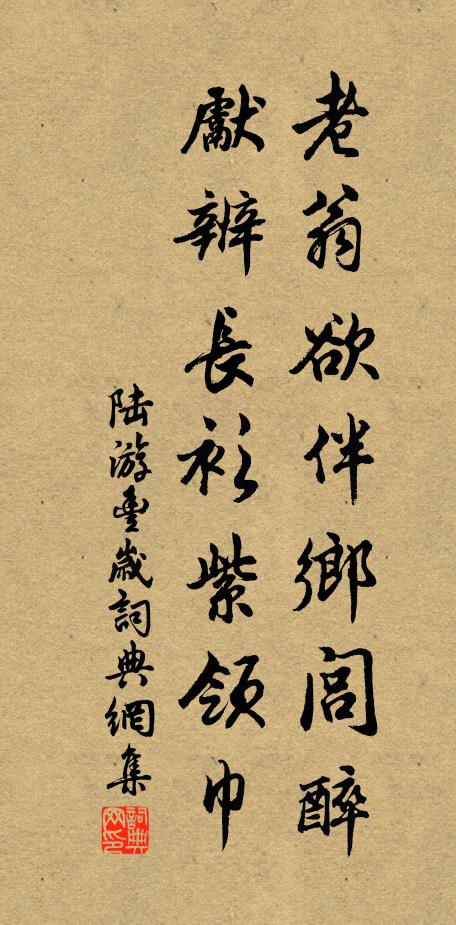 老翁欲伴鄉閭醉
獻辦長衫紫領巾
陸游豐歲詞典網集
詞典
网印